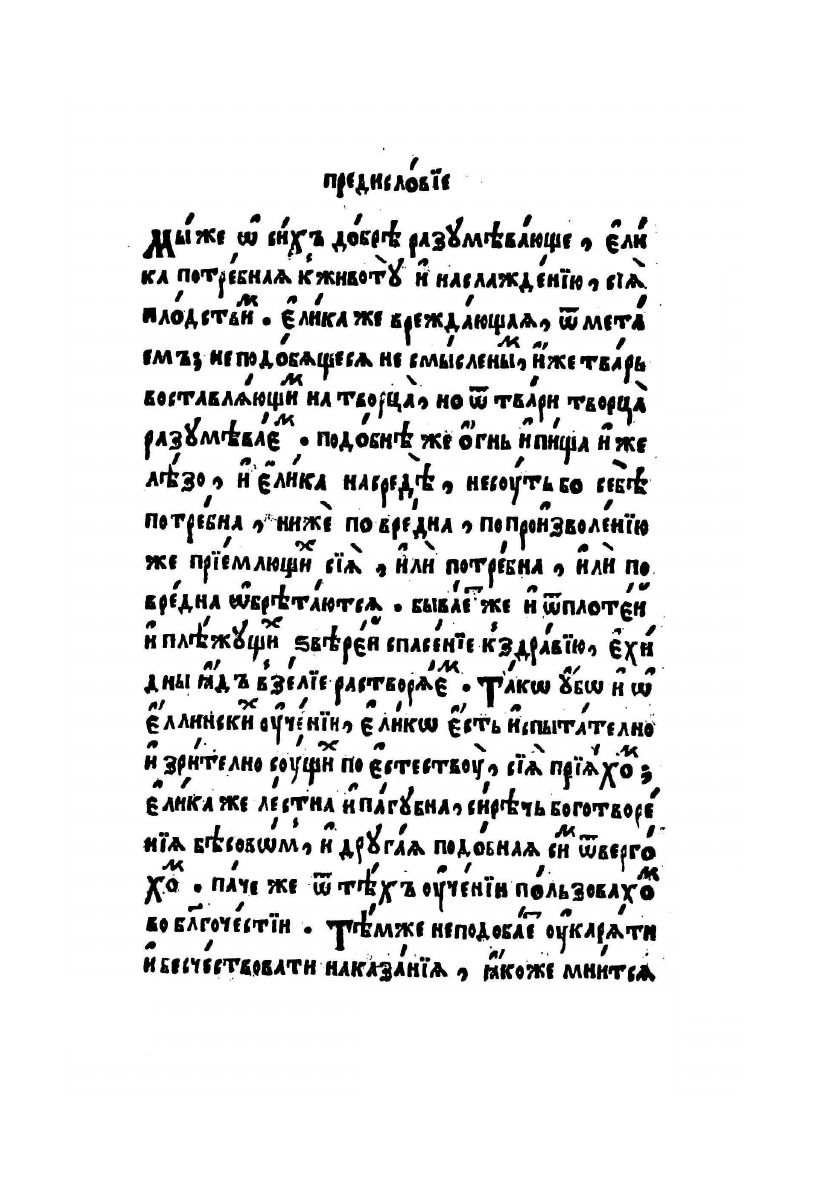 предисло́вїе
Мы́ же ѿ си́хъ до́брѣ разꙋмѣва́юще, є҆ли
ка потре́бнаѧ к҆животꙋ̀ и҆ наслажде́нїю, сїѧ̀
плодстви́ⷨ. є҆ли́ка же врежда́ющаѧ, ѿмета́
емъ; неподо́бѧщесѧ не смы́слены́ⷨ, и҆́же тва́рь
воставлѧ́ющи́ⷨ на творца̀, но ѿ тва́ри творца̀
разꙋмѣва́еⷨ. подо́бнѣ же ѻ҆́гнь и҆ пи́ща и҆ же
лѣ́зо, и҆ є҆ли́ка насредѣ̀, несꙋ́ть бо себѣ̀
потре́бна, нижѐ повре́дна, попроизволе́нїю
же прїе́млющиⷯ сїѧ̀, и҆лѝ потре́бна, и҆лѝ по
вре́дна ѡ҆брѣта́ютсѧ. быва́еⷮ же и҆ ѿ плоте́й
и҆ плѣ́жꙋщиⷯ ѕвѣре́й спасе́нїе к҆здра́вїю, є҆хи́
дны ꙗ҆́дъ в҆зе́лїе растворѧ́еⷨ. Та́кѡ ᲂу҆́бѡ и҆ ѡ҆
є҆́ллинскиⷯ ᲂу҆че́нїи, є҆ли́кѡ є҆́сть и҆спыта́телно
и҆ зри́телно сꙋ́щиⷯ по є҆стествꙋ̀, сїѧ̀ прїѧ́хоⷨ;
є҆ли́ка же ле́стна и҆ па́гꙋбна, си́рѣчь боготворе́
нїѧ бѣсовѡ́м, и҆ дрꙋга́ѧ подо́бнаѧ сиⷨ ѿверго́
хоⷨ. па́че же ѿ тѣ́хъ ᲂу҆че́нїи по́льзовахоⷨ
во бл҃гоче́стїи. Тѣ́мже неподоба́еⷮ ᲂу҆карѧ́ти
и҆ бесче́ствовати наказа́нїѧ, ꙗ҆́коже мни́тсѧ